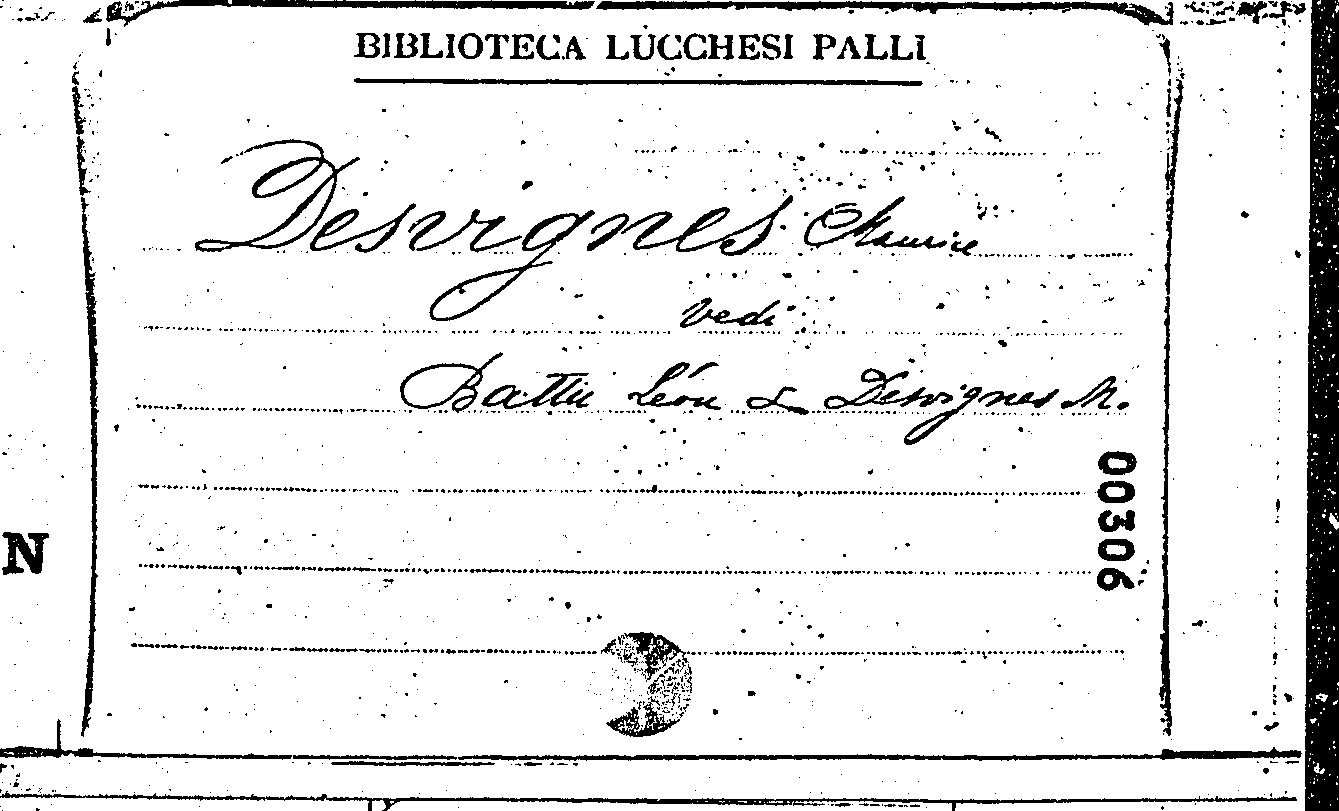 BIBLIOTECA LUCCHESI PALLI
Desvignes Maurice
vedi
Battu Léon & Desvignes M.
00306
N